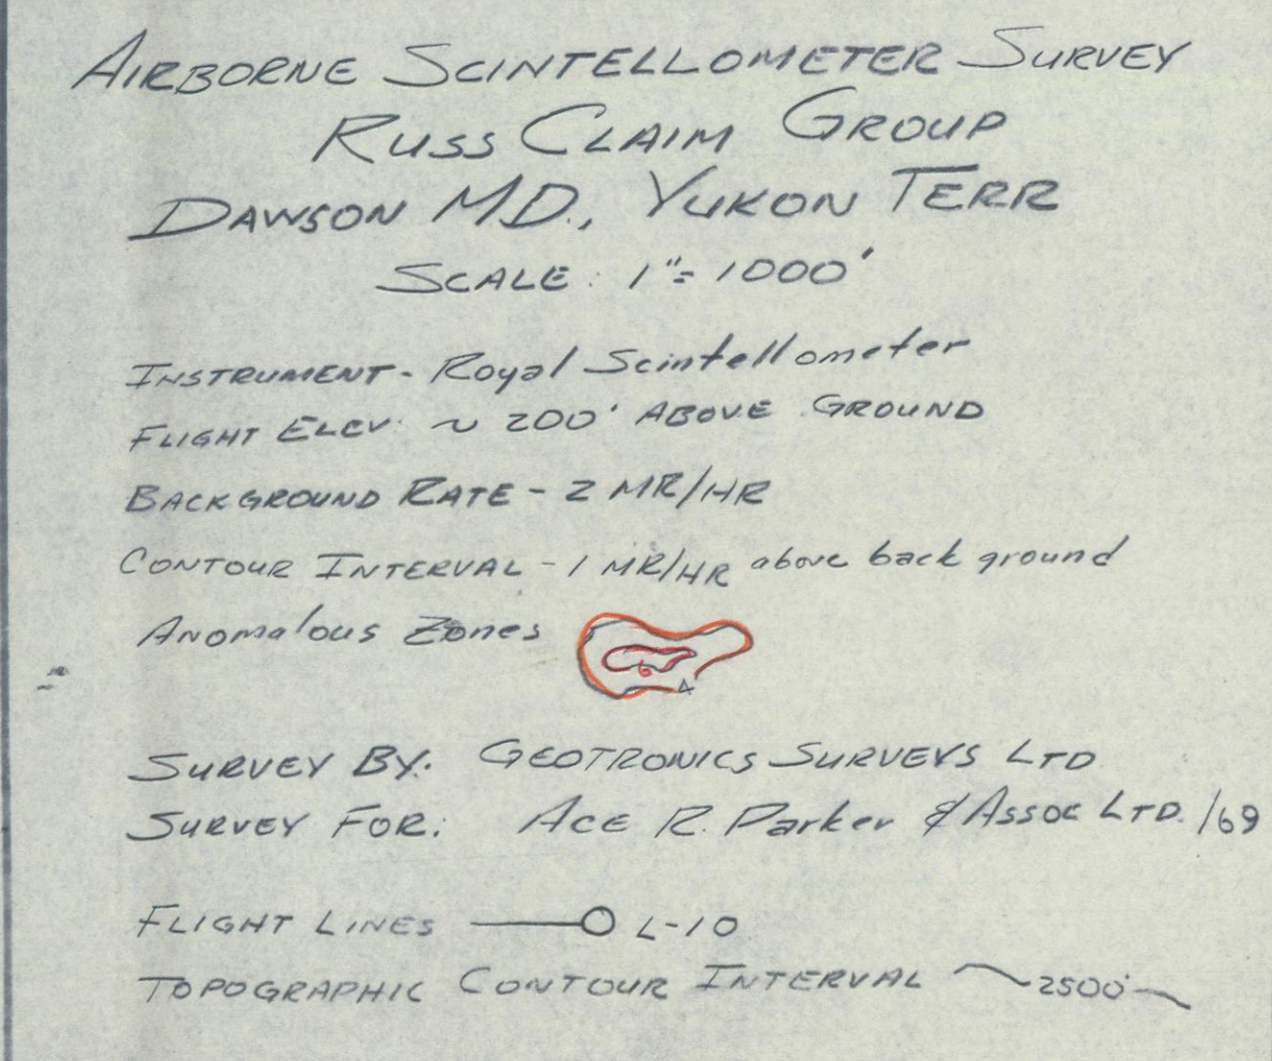 AIRBORNE SCINTELLOMETER SURVEY
RUSS CLAIM GROUP
DAWSON M.D., YUKON TERR
SCALE: 1"= 1000'
INSTRUMENT - Royal Scintellometer
FLIGHT ELEV. ~ 200' ABOVE GROUND
BACKGROUND RATE - 2 MR/HR
CONTOUR INTERVAL - 1 MR/HR above back ground
Anomalous Zones 6 4
SURVEY BY: GEOTRONICS SURVEYS LTD
SURVEY FOR: ACE R. Parker & ASSOC LTD. /69
FLIGHT LINES L-10
TOPOGRAPHIC CONTOUR INTERVAL 2500'